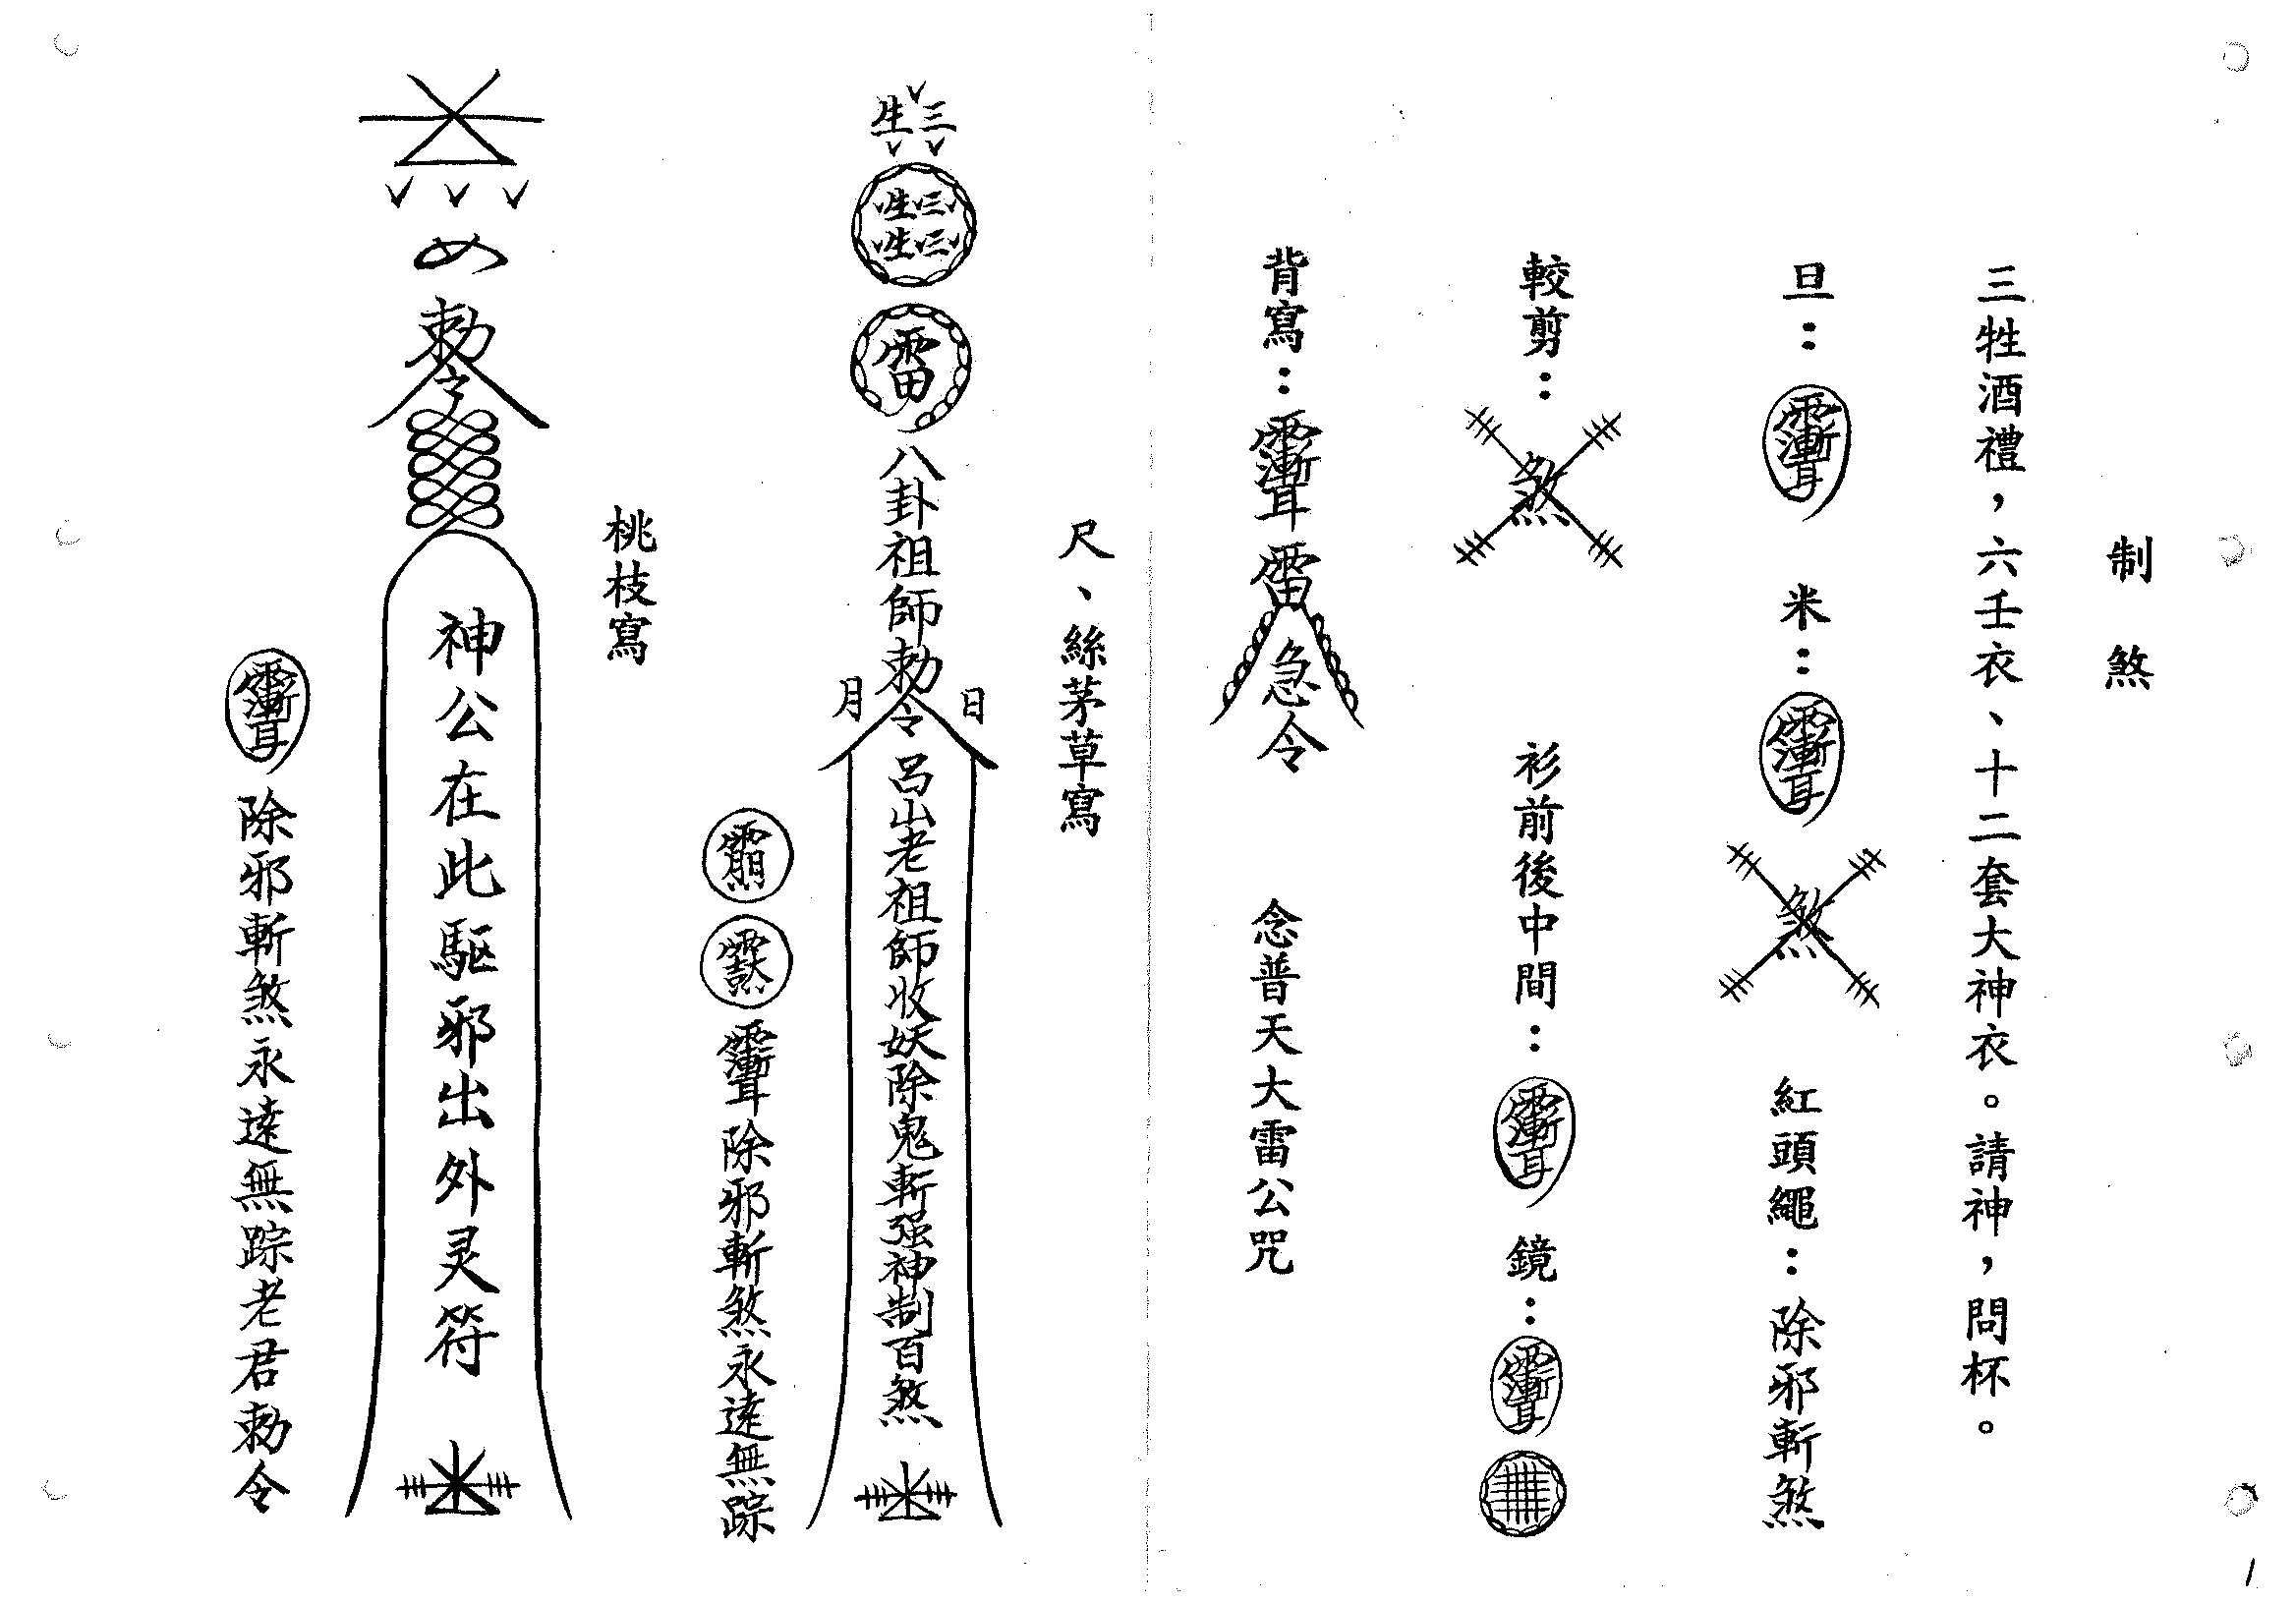 制煞
三牲酒禮，六壬衣、十二套大神衣。請神，問杯。
旦： 米： 煞 紅頭繩：除邪斬煞
較剪： 煞 衫前後中間： 鏡：
背寫： 雷 急令 念普天大雷公咒
尺、絲茅草寫
三生
三三生生
雷
八卦祖師勅令呂山老祖師收妖除鬼斬强神制百煞
日月
除邪斬煞永遠無踪
桃枝寫
勅令
神公在此駆邪出外灵符
除邪斬煞永遠無踪老君勅令
1